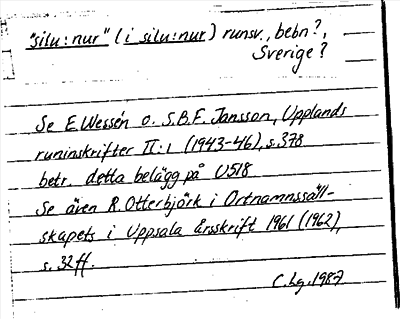 "silu:nur" (i silu:nur) runsv., bebn?,
Sverige?
Se E.Wessén o. S.B.F. Jansson, Upplands
runinskrifter II:1 (1943-46), s.378
betr. detta belägg på U518
Se även R.Otterbjörk i Ortnamnssäll-
skapets i Uppsala årsskrift 1961 (1962),
s.32ff.
C.Lg.1987